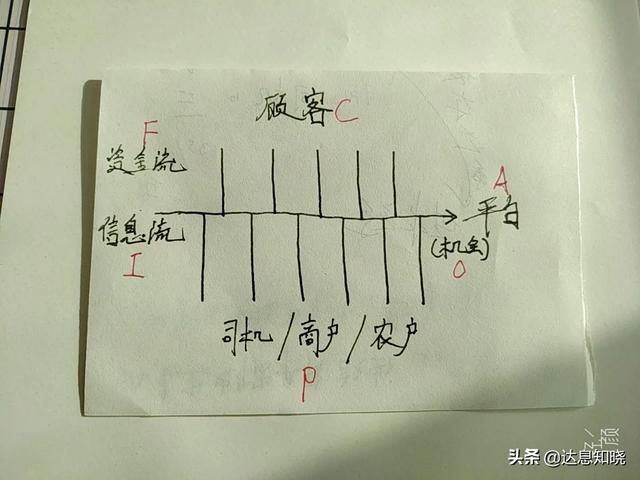 顾客C
F
资金流
A
平台
信息流
(机会)
I
O
司机/商户/农户
P
颜
头条 @达息知晓